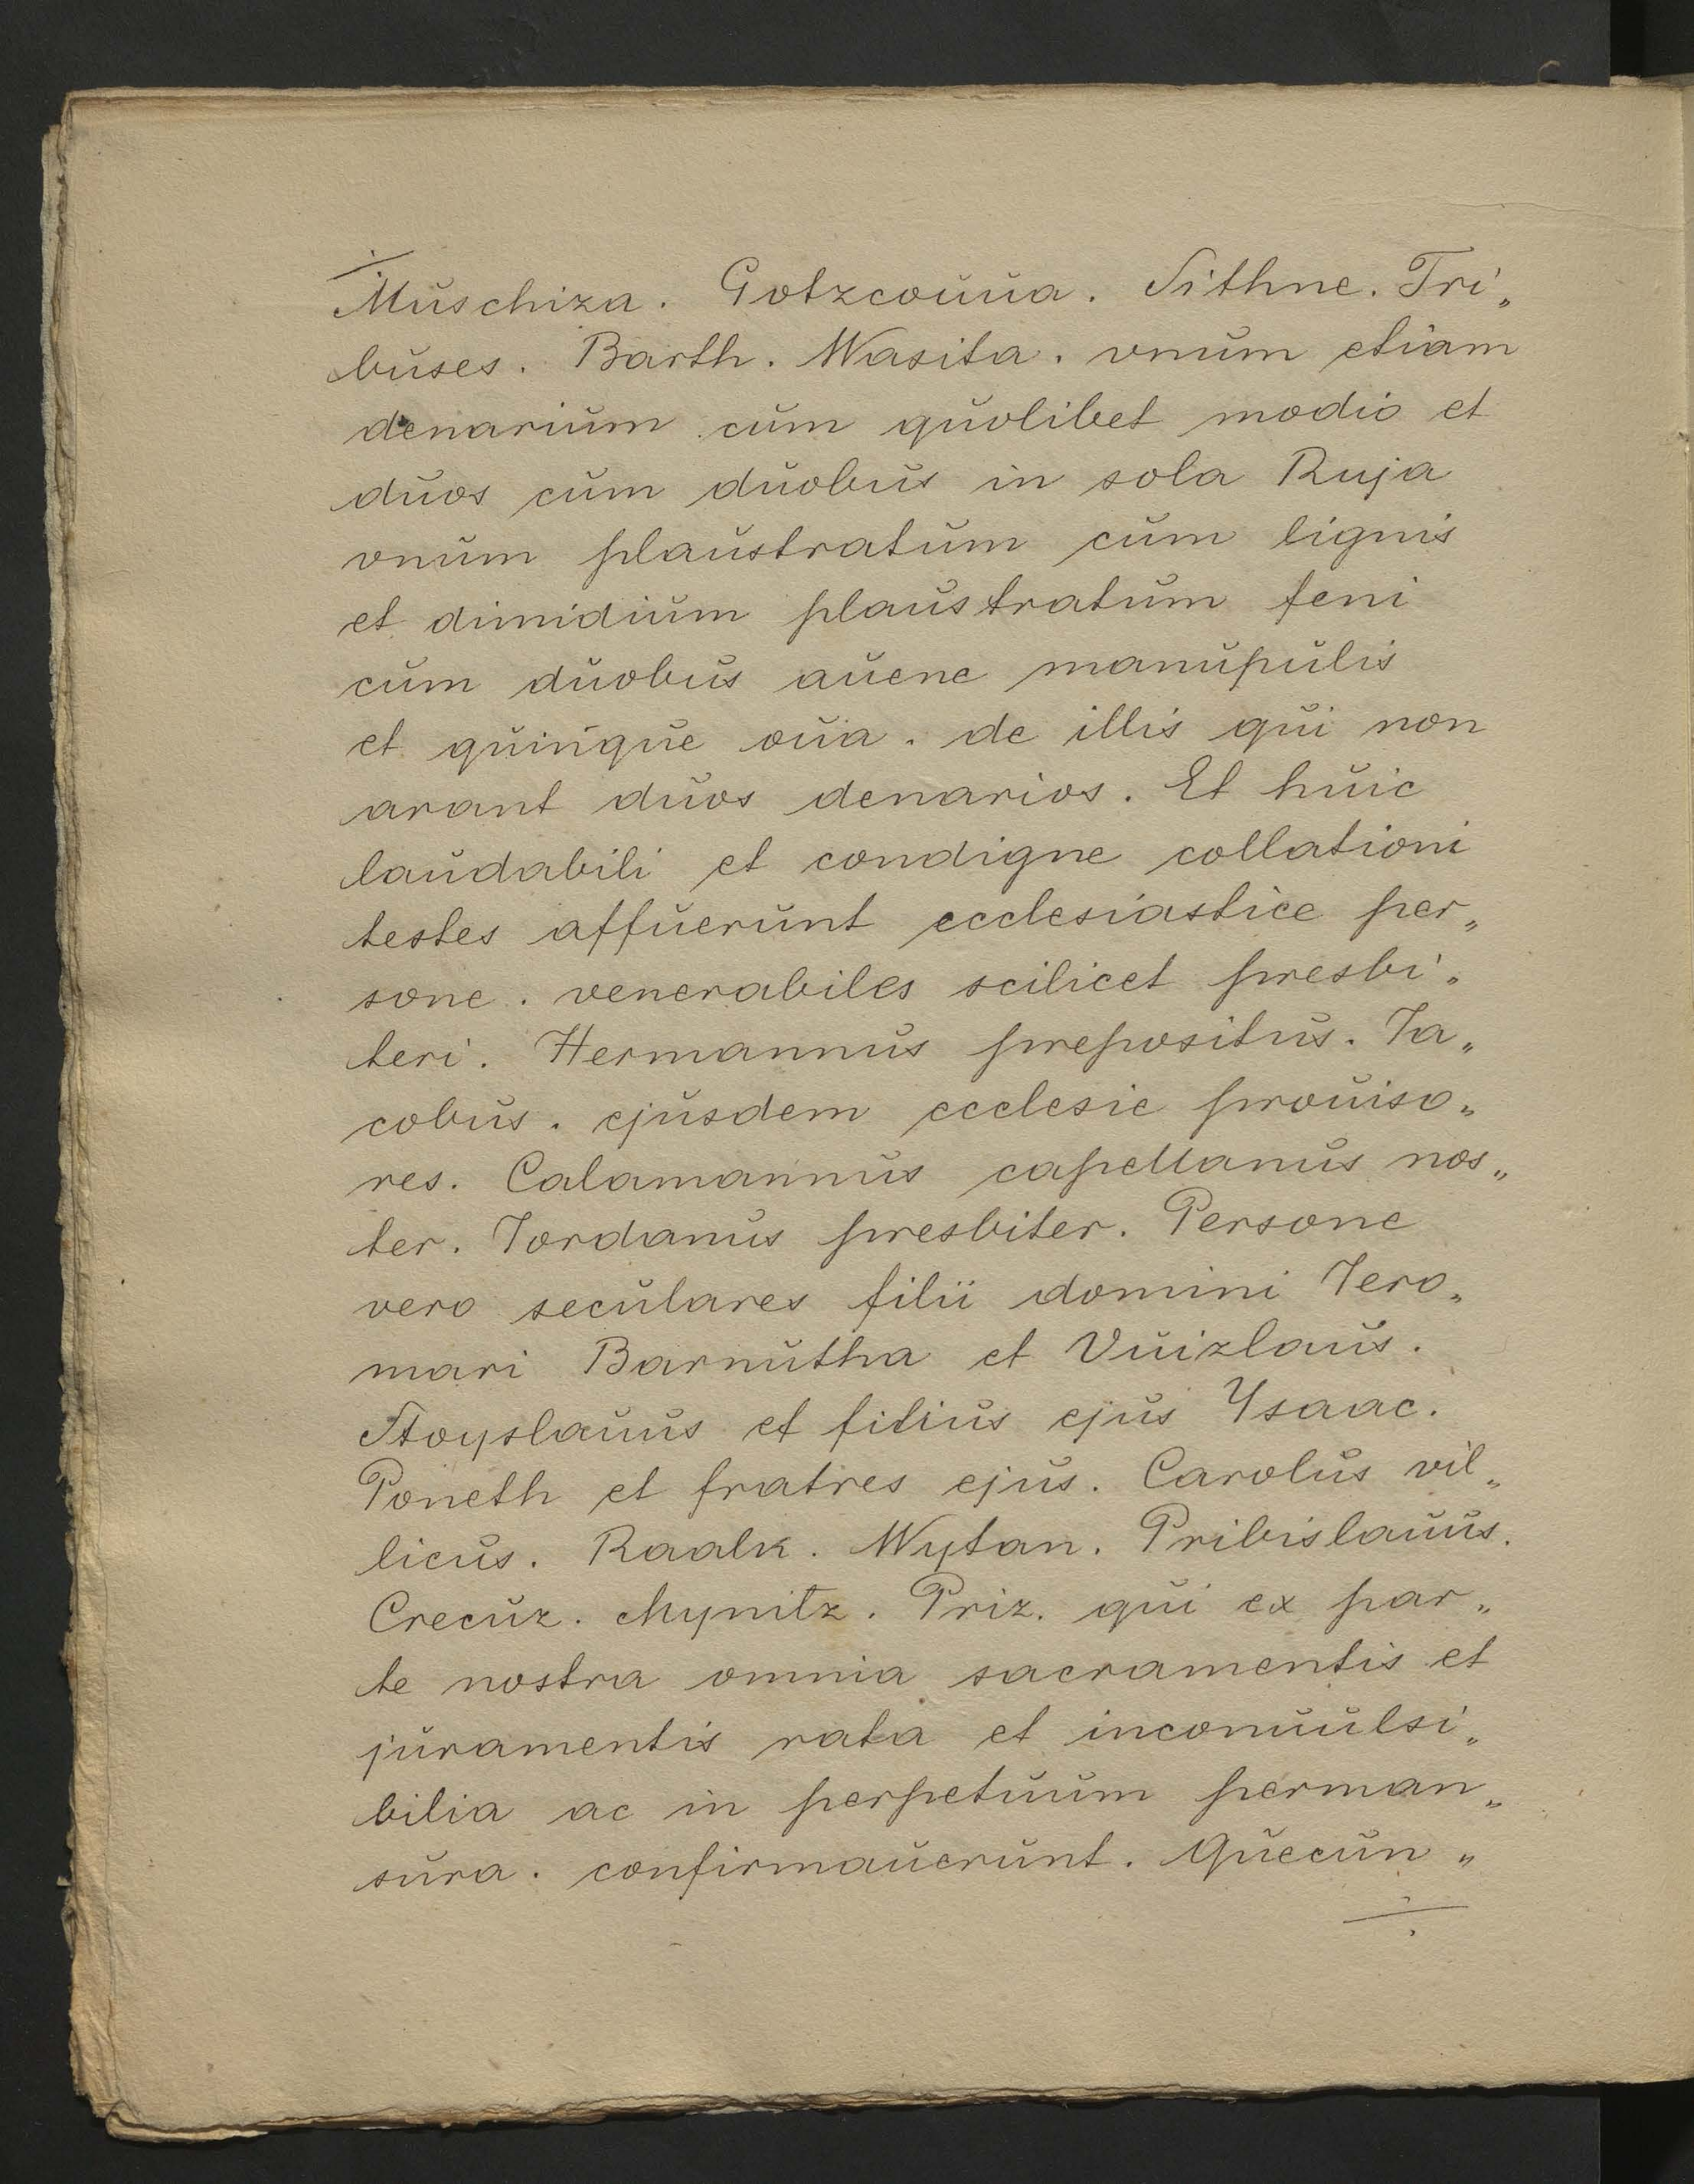 Muschiza. Gotzcouua. Sithne. Tri„
buses. Barth. Wasita. vnum etiam
denarium cum quolibet modio et
duos cum duobus in sola Ruja
vnum plaustratum cum lignis
et dimidium plaustratum feni
cum duobus auene manupulis
et quinque oua. de illis qui non
arant duos denarios. Et huic
laudabili et condigne collationi
testes affuerunt ecclesiastice per„
sone. venerabiles scilicet presbi„
teri. Hermannus prepositus. Ja„
cobus. ejusdem ecclesie prouiso„
res. Calamannus capellanus nos„
ter. Jordanus presbiter. Persone
vero seculares filii domini Jero„
mari Barnutha et Vuizlaus.
Stoyslauus et filius ejus Ysaac.
Poneth et fratres ejus. Carolus vil„
licus. Raalk. Wytan. Pribislauus.
Crecuz. Mynitz. Priz. qui ex par„
te nostra omnia sacramentis et
juramentis rata et inconuulsi„
bilia ac in perpetuum perman„
sura. confirmauerunt. Quecun„